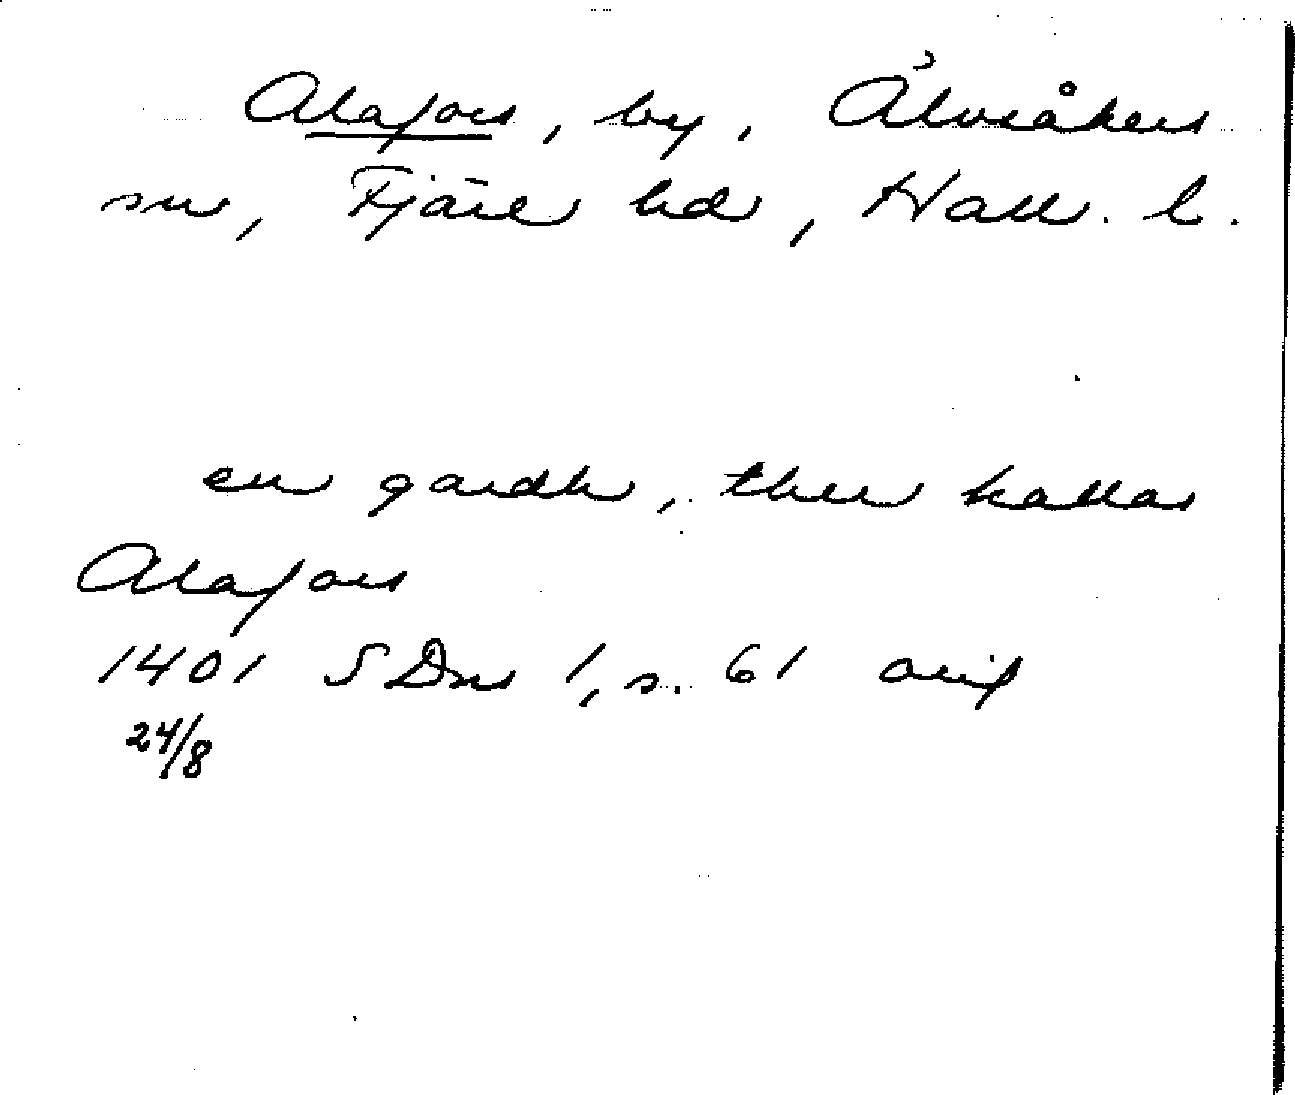 Alafors, by, Älvsåkers
sn, Fjäre hd, Hall. l.
en gardh, ther kallas
Alafors
1401 SDns 1, s. 61 avs
24/8